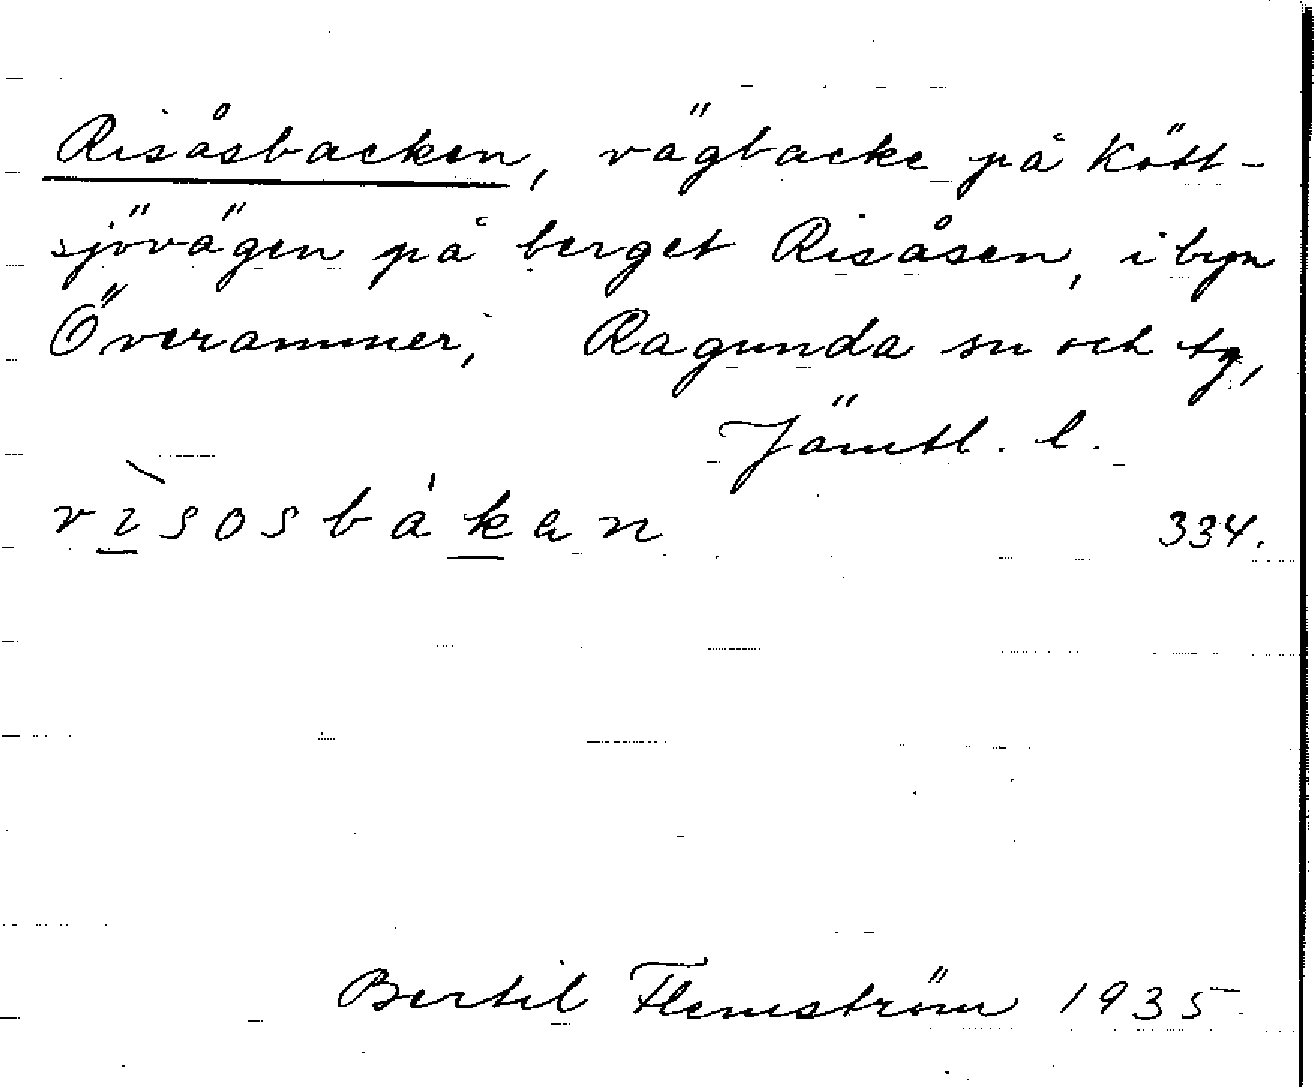 Risåsbacken, vägbacke på Kött-
sjövägen på berget Risåsen, i byn
Överammer, Ragunda sn och tg,
Jämtl. l.
rìsosbákan
334.
Bertil Flemström 1935